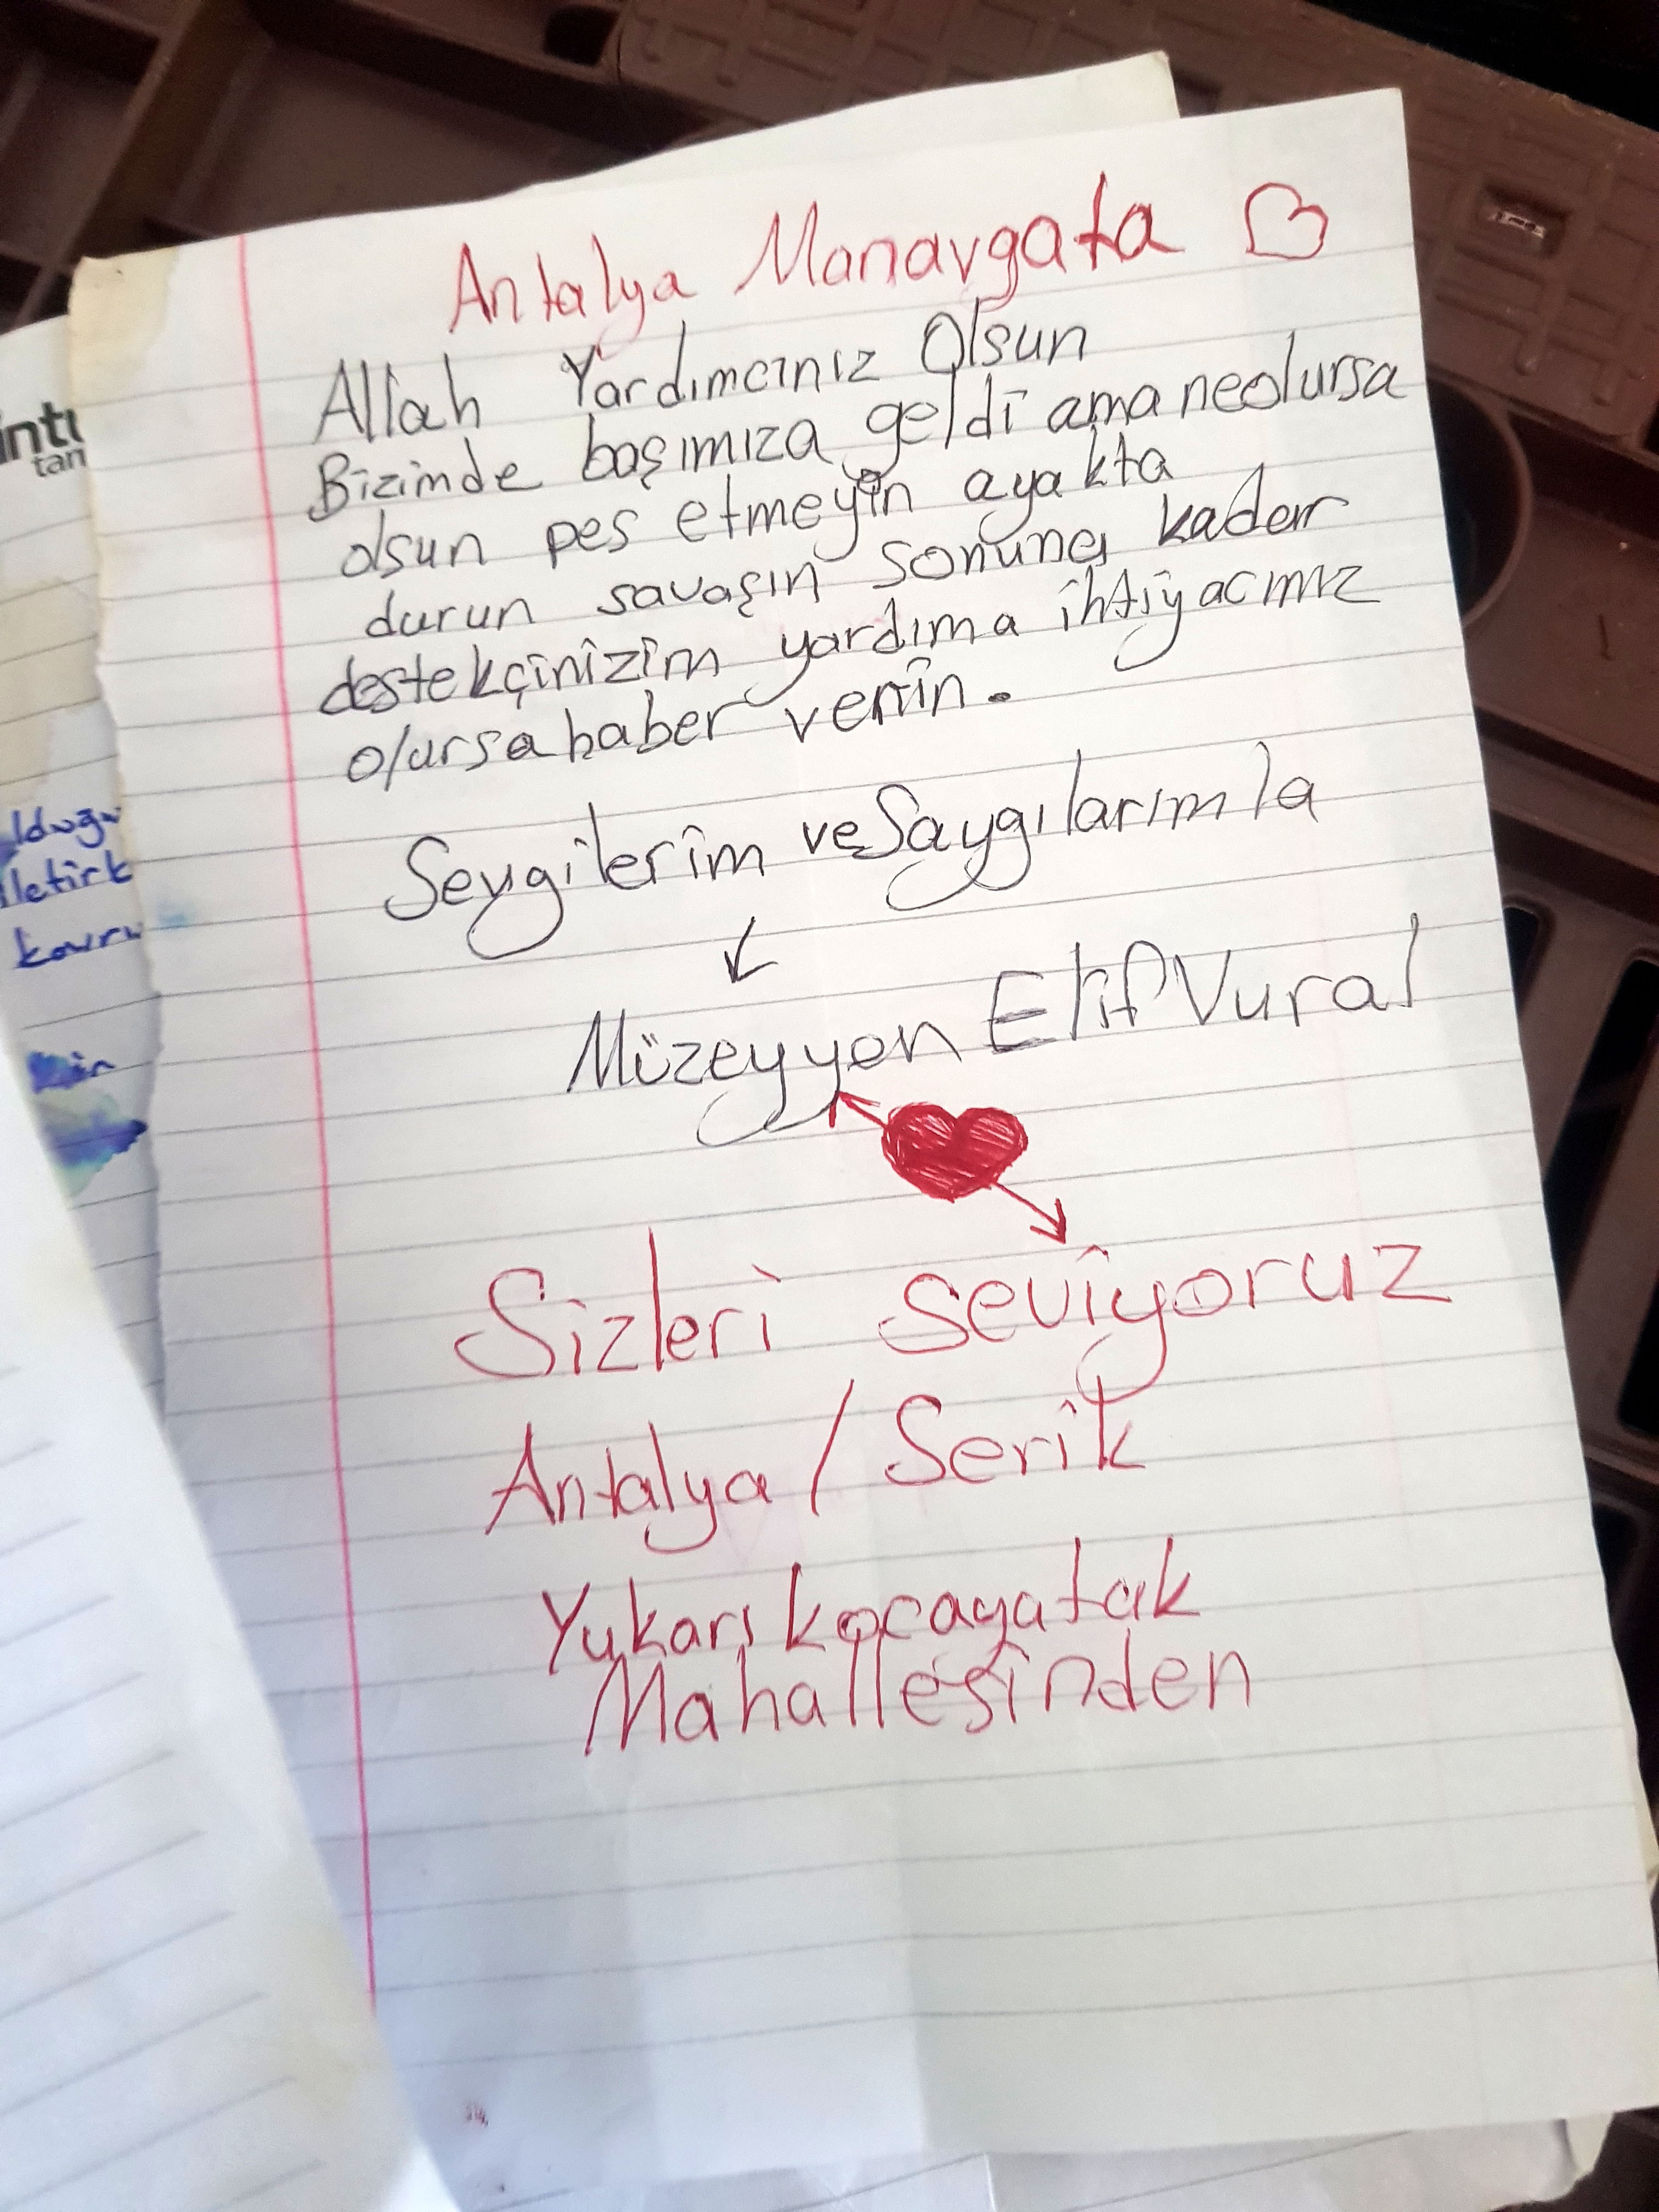 Antalya Manavgata
Allah Yardımcınız Olsun
Bizimde başımıza geldi ama neolursa
olsun pes etmeyin ayakta
durun savaşın sonuna kadar
destekçinizim yardıma ihtiyacınız
olursa haber verin.
Sevgilerim ve Saygılarımla
Müzeyyen Elif Vural
Sizleri seviyoruz
Antalya / Serik
Yukarıkocayatak
Mahallesinden
tan